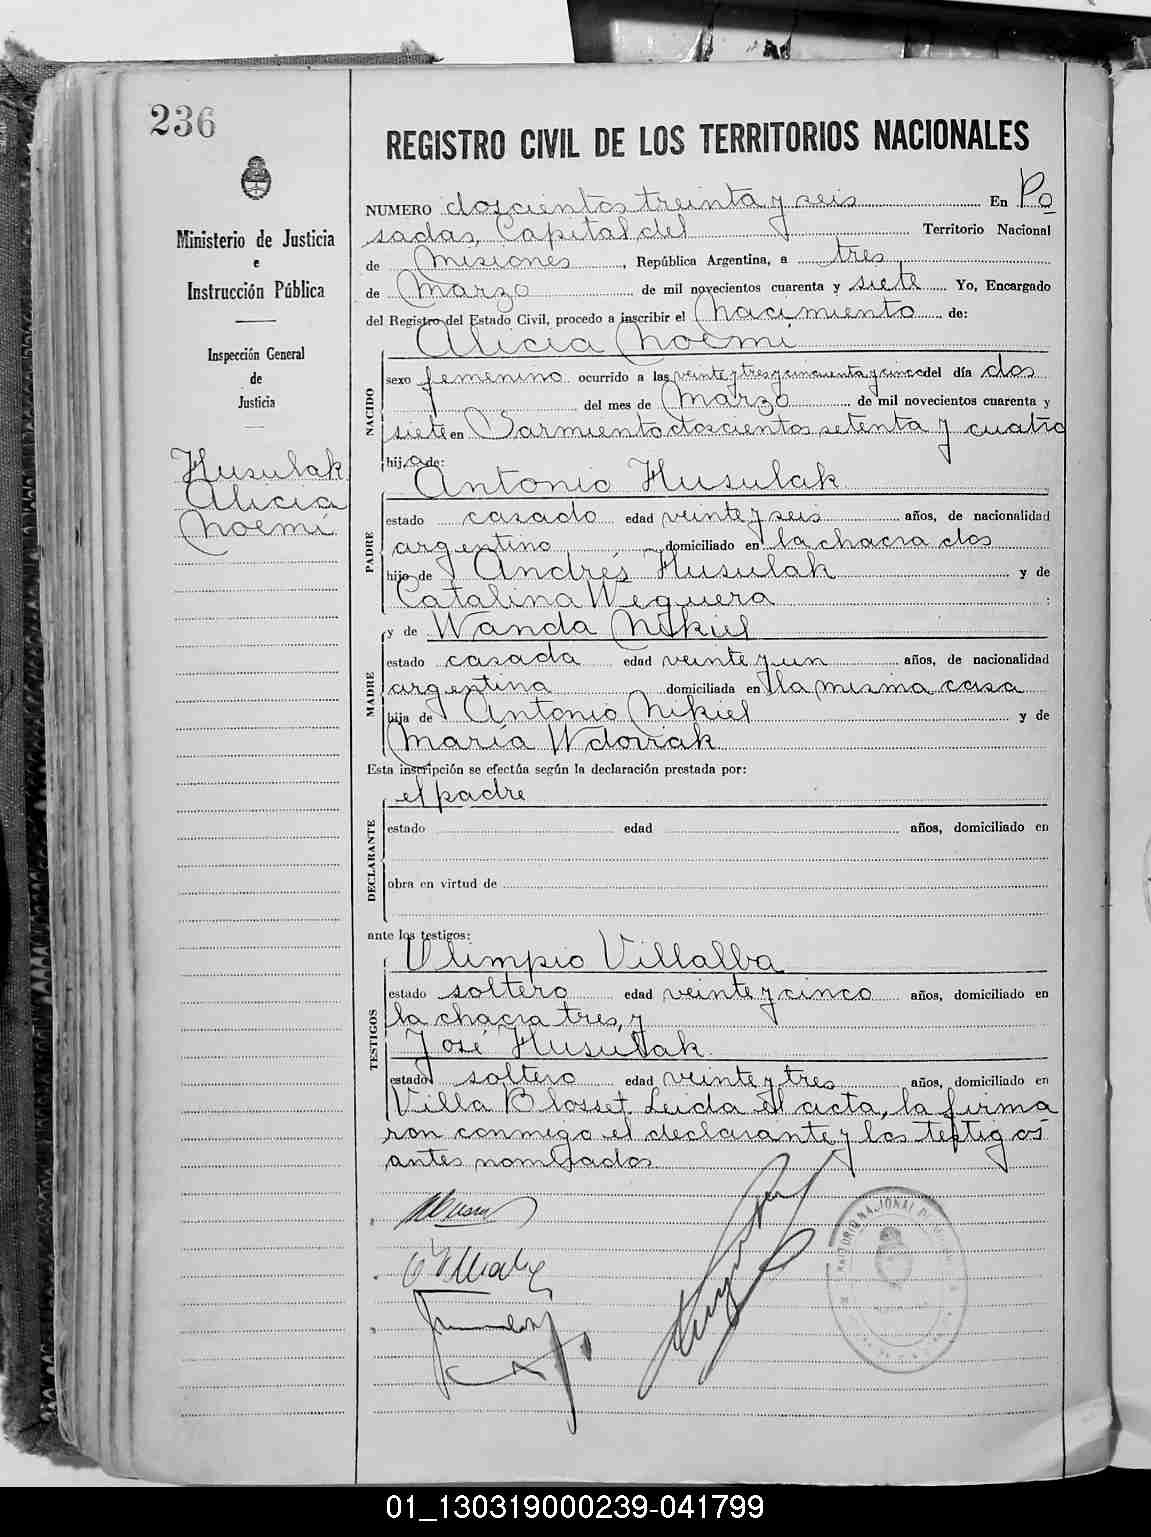 236
Ministerio de Justicia
e
Instrucción Pública
Inspección General
de
Justicia
Husulak
Alicia
Noemí
REGISTRO CIVIL DE LOS TERRITORIOS NACIONALES
NUMERO doscientos treinta y seis En Po
sadas, Capital del Territorio Nacional
de Misiones, República Argentina, a tres
de Marzo de mil novecientos cuarenta y siete Yo, Encargado
del Registro del Estado Civil, procedo a inscribir el Nacimiento de:
Alicia Noemí
NACIDO
sexo femenino ocurrido a las veinte y tres y cincuenta y cinco del día dos
del mes de Marzo de mil novecientos cuarenta y
siete en Sarmiento doscientos setenta y cuatro
hija de:
Antonio Husulak
PADRE
estado casado edad veinte y seis años, de nacionalidad
argentino domiciliado en la chacra dos
hijo de Andrés Husulak y de
Catalina Weguera
y de Wanda Nikiel
MADRE
estado casada edad veinte y un años, de nacionalidad
argentina domiciliada en la misma casa
hija de Antonio Nikiel y de
María Wdoviak
Esta inscripción se efectúa según la declaración prestada por:
el padre
DECLARANTE
estado edad años, domiciliado en
obra en virtud de
ante los testigos:
Olimpio Villalba
TESTIGOS
estado soltero edad veinte y cinco años, domiciliado en
la chacra tres, y
José Husulak
estado soltero edad veinte y tres años, domiciliado en
Villa Blosset. Leida el acta, la firma
ron conmigo el declarante y los testigos
antes nombrados
01_130319000239-041799